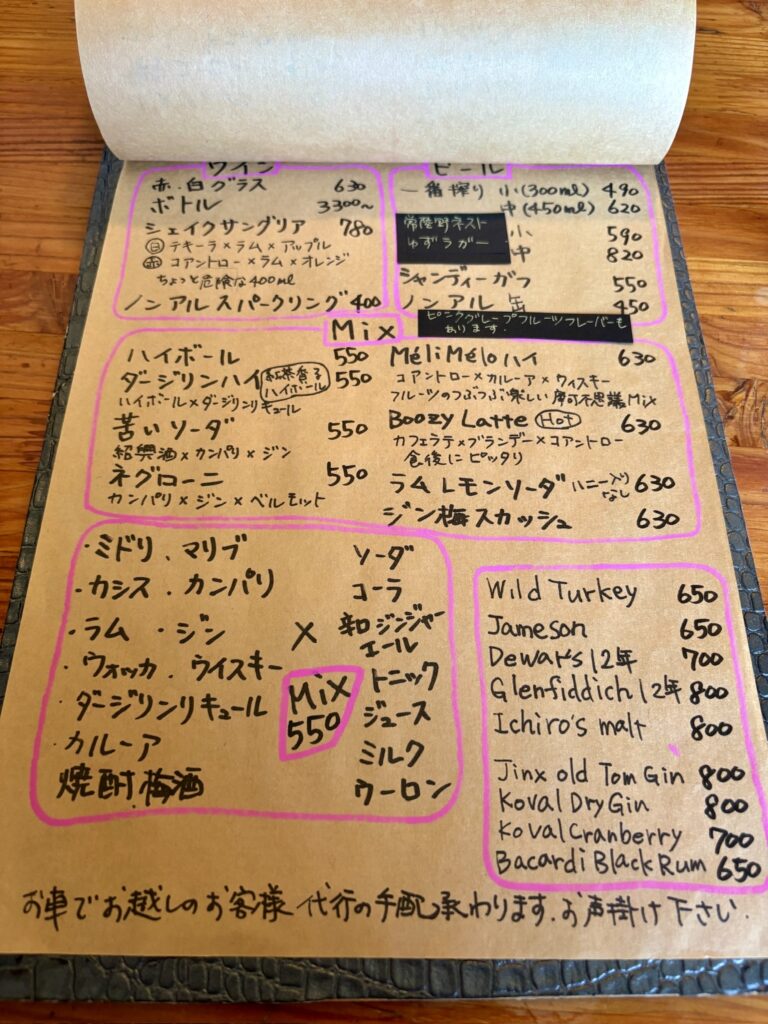 ワイン
赤.白グラス 630
ボトル 3300~
シェイクサングリア 780
白 テキーラ×ラム×アップル
赤 コアントロー×ラム×オレンジ
ちょっと危険な400ml
ノンアルスパークリング 400
ビール
一番搾り 小(300ml) 490
中(450ml) 620
常陸野ネスト
ゆずラガー
小 590
中 820
シャンディーガフ 550
ノンアル 缶 450
ピンクグレープフルーツフレーバーも
あります.
Mix
ハイボール 550
ダージリンハイ 紅茶香る ハイボール 550
ハイボール×ダージリンリキュール
苦いソーダ 550
紹興酒×カンパリ×ジン
ネグローニ 550
カンパリ×ジン×ベルモット
MéliMéloハイ 630
コアントロー×カルーア×ウィスキー
フルーツのつぶつぶ楽しい摩可不思議Mix
Boozy Latte Hot 630
カフェラテ×ブランデー×コアントロー
食後にピッタリ
ラムレモンソーダ ハニー入り なし 630
ジン梅スカッシュ 630
・ミドリ.マリブ
・カシス.カンパリ
・ラム ・ジン
・ウォッカ.ウイスキー
・ダージリンリキュール
・カルーア
焼酎.梅酒
×
Mix
550
ソーダ
コーラ
辛ジンジャー
エール
トニック
ジュース
ミルク
ウーロン
Wild Turkey 650
Jameson 650
Dewar's 12年 700
Glenfiddich 12年 800
Ichiro's malt 800
Jinx old Tom Gin 800
Koval Dry Gin 800
Koval Cranberry 700
Bacardi Black Rum 650
お車でお越しのお客様 代行の手配承わります.お声掛け下さい.